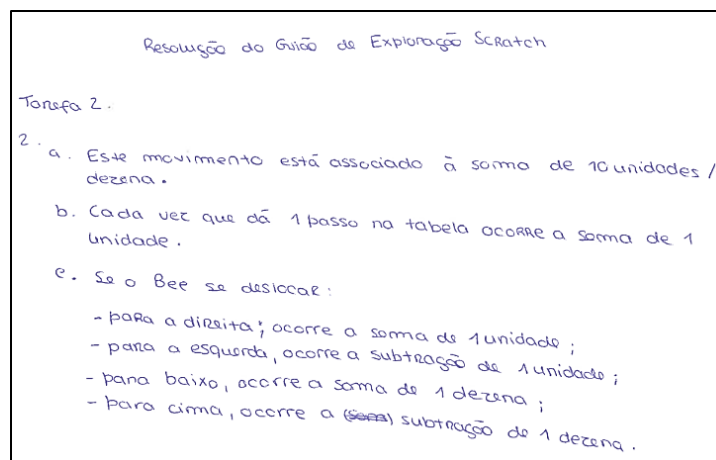 Resolução do Guião de Exploração Scratch
Tarefa 2.
2.
a. Este movimento está associado à soma de 10 unidades /
dezena.
b. Cada vez que dá 1 passo na tabela ocorre a soma de 1
unidade.
c. Se o Bee se deslocar:
- para a direita; ocorre a soma de 1 unidade;
- para a esquerda, ocorre a subtração de 1 unidade;
- para baixo, ocorre a soma de 1 dezena;
- para cima, ocorre a (soma) subtração de 1 dezena.